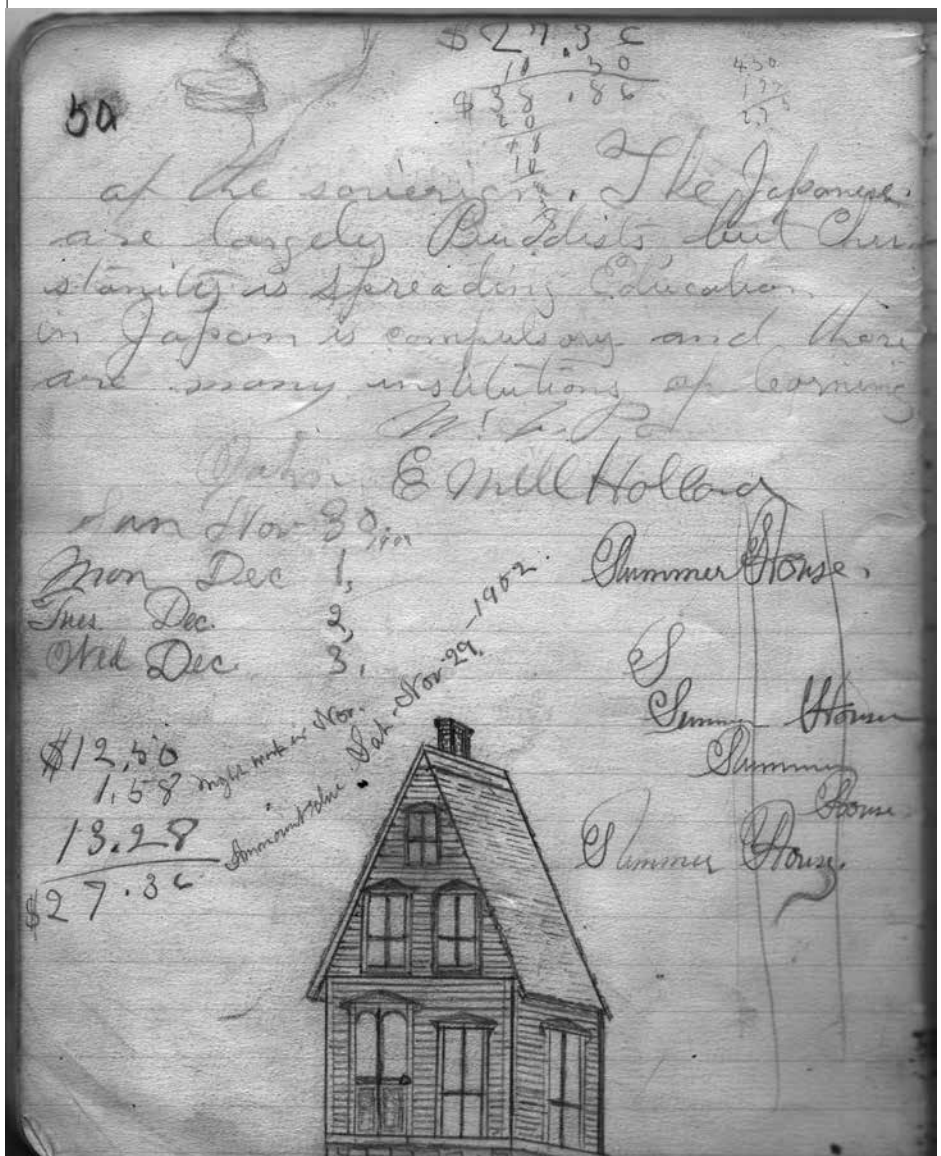 50
$27.36
10 50
$38.86
20
10
430
of the soverign. The Japanese
are largely Buddists but Chri
stanity is spreading Education
in Japan is compulsory and there
are many institutions of learning
E Mill Holland
Sun Nov 30,
Mon Dec 1,
Tues Dec. 2,
Wed Dec. 3,
Summer House.
S
Summer House
Summer
House
Summer House.
$12,50
1,58 might make in Nov.
13.28
$27.36
Ammount due Sat. Nov 29,-1902.